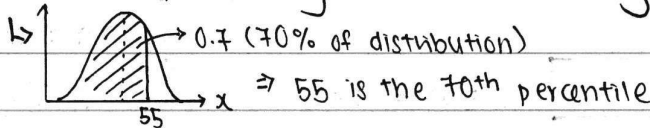 ↳ → 0.7 (70% of distribution)
x ⇒ 55 is the 70th percentile
55